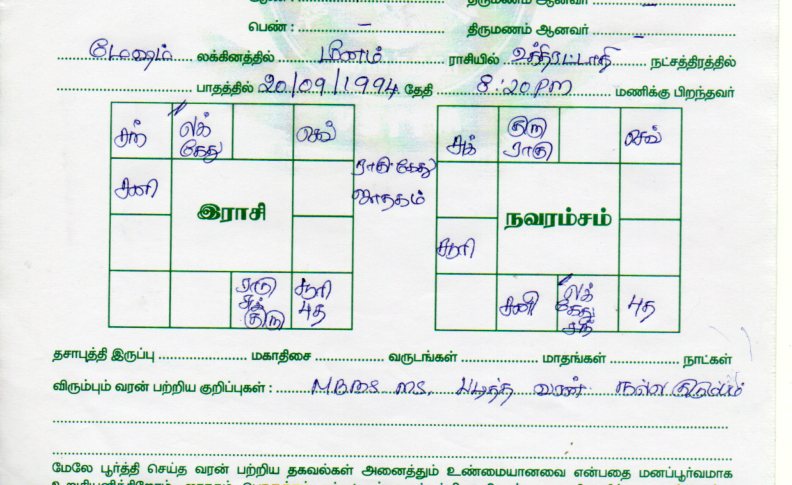 பெண் : – திருமணம் ஆனவர் –
மேஷம் லக்கினத்தில் மீனம் ராசியில் உத்திரட்டாதி நட்சத்திரத்தில்
பாதத்தில் 20/09/1994 தேதி 8:20 PM மணிக்கு பிறந்தவர்
சந் லக் கேது செவ்
சனி
இராசி
ராகு சுக் குரு சூரி புத
ராகு கேது
ஜாதகம்
சுக் குரு ராகு செவ்
சூரி
நவரம்சம்
சனி லக் கேது சந் புத
தசாபுத்தி இருப்பு மகாதிசை வருடங்கள் மாதங்கள் நாட்கள்
விரும்பும் வரன் பற்றிய குறிப்புகள் : MBBS MS. படித்த வரன் நல்ல குடும்பம்
மேலே பூர்த்தி செய்த வரன் பற்றிய தகவல்கள் அனைத்தும் உண்மையானவை என்பதை மனப்பூர்வமாக